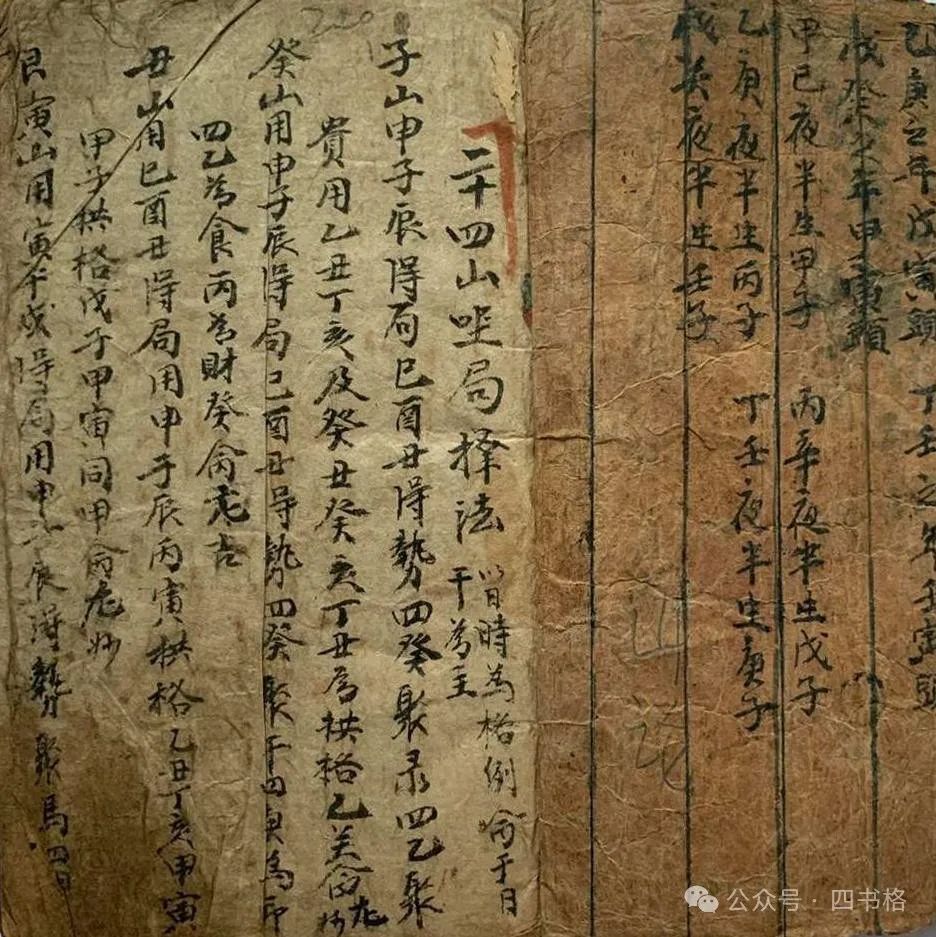 乙庚之年戊寅頭 丁壬之年壬寅頭
戊癸之年甲寅頭
甲己夜半生甲子 丙辛夜半生戊子
乙庚夜半生丙子 丁壬夜半生庚子
戊癸夜半生壬子
二十四山坐局择法 以日時為格例 命于日干為主
子山申子辰得局巳酉丑得勢四癸聚录四乙聚
貴用乙丑丁亥及癸丑癸亥丁丑為拱格乙
癸山用申子辰得局巳酉丑得勢四癸聚干四庚為印
四乙為食丙為財癸命尤吉
丑山用巳酉丑得局用申子辰丙寅拱格乙丑丁亥甲寅
甲子拱格戊子甲寅同甲命尤妙
艮寅山用寅午戌得局用申子辰得勢聚馬四
公众号 · 四书格